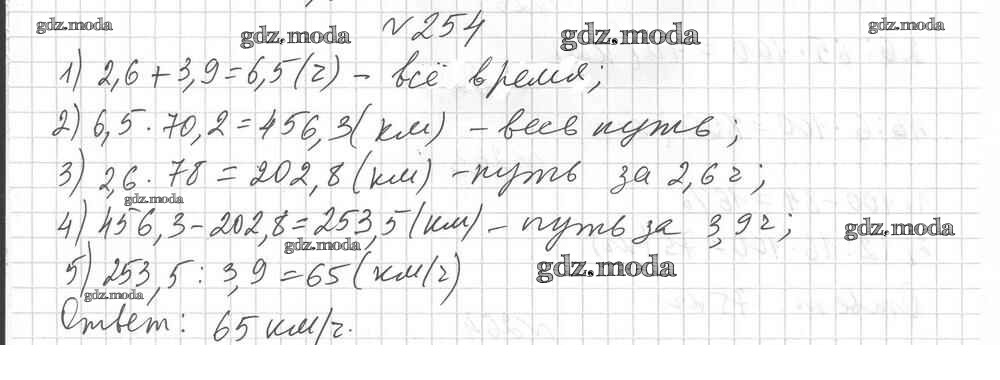 gdz.moda gdz.moda № 254 gdz.moda gdz.moda
1) 2,6 + 3,9 = 6,5 (ч) – всё время;
2) 6,5 · 70,2 = 456,3 (км) – весь путь;
3) 2,6 · 78 = 202,8 (км) – путь за 2,6 ч;
gdz.moda
4) 456,3 – 202,8 = 253,5 (км) – путь за 3,9 ч; gdz.moda
gdz.moda
5) 253,5 : 3,9 = 65 (км/ч) gdz.moda
gdz.moda
Ответ: 65 км/ч.